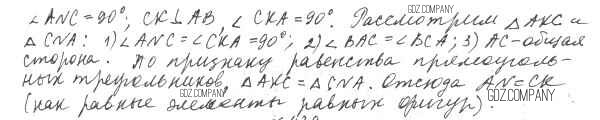 ∠ANC = 90°, CK⊥AB, ∠CKA = 90°. Рассмотрим △AKC и
△CNA: 1) ∠ANC = ∠CKA = 90°; 2) ∠BAC = ∠BCA; 3) AC - общая
сторона. По признаку равенства прямоуголь-
ных треугольников △AKC = △CNA. Отсюда AN = CK
(как равные элементы равных фигур).
GDZ.COMPANY
GDZ.COMPANY
GDZ.COMPANY